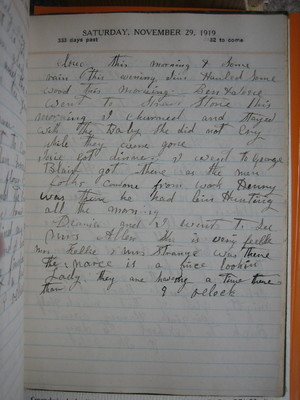 SATURDAY, NOVEMBER 29, 1919
333 days past 32 to come
this morning & some
rain this morning Jim Hauled some
wood this morning Ben
went to Store this
morning I churned and stayed
with the Baby she did not Cry
while they were gone
got dinner I went to George
Blain got there as the men
come from work Donny
was there he had bin Hunting
all the morning
and I went to see
Mrs Allen She is very feeble
Mrs Kellie & Mrs Strange were there
the is a nice lookin
Lady they are having a time there
9 oclock